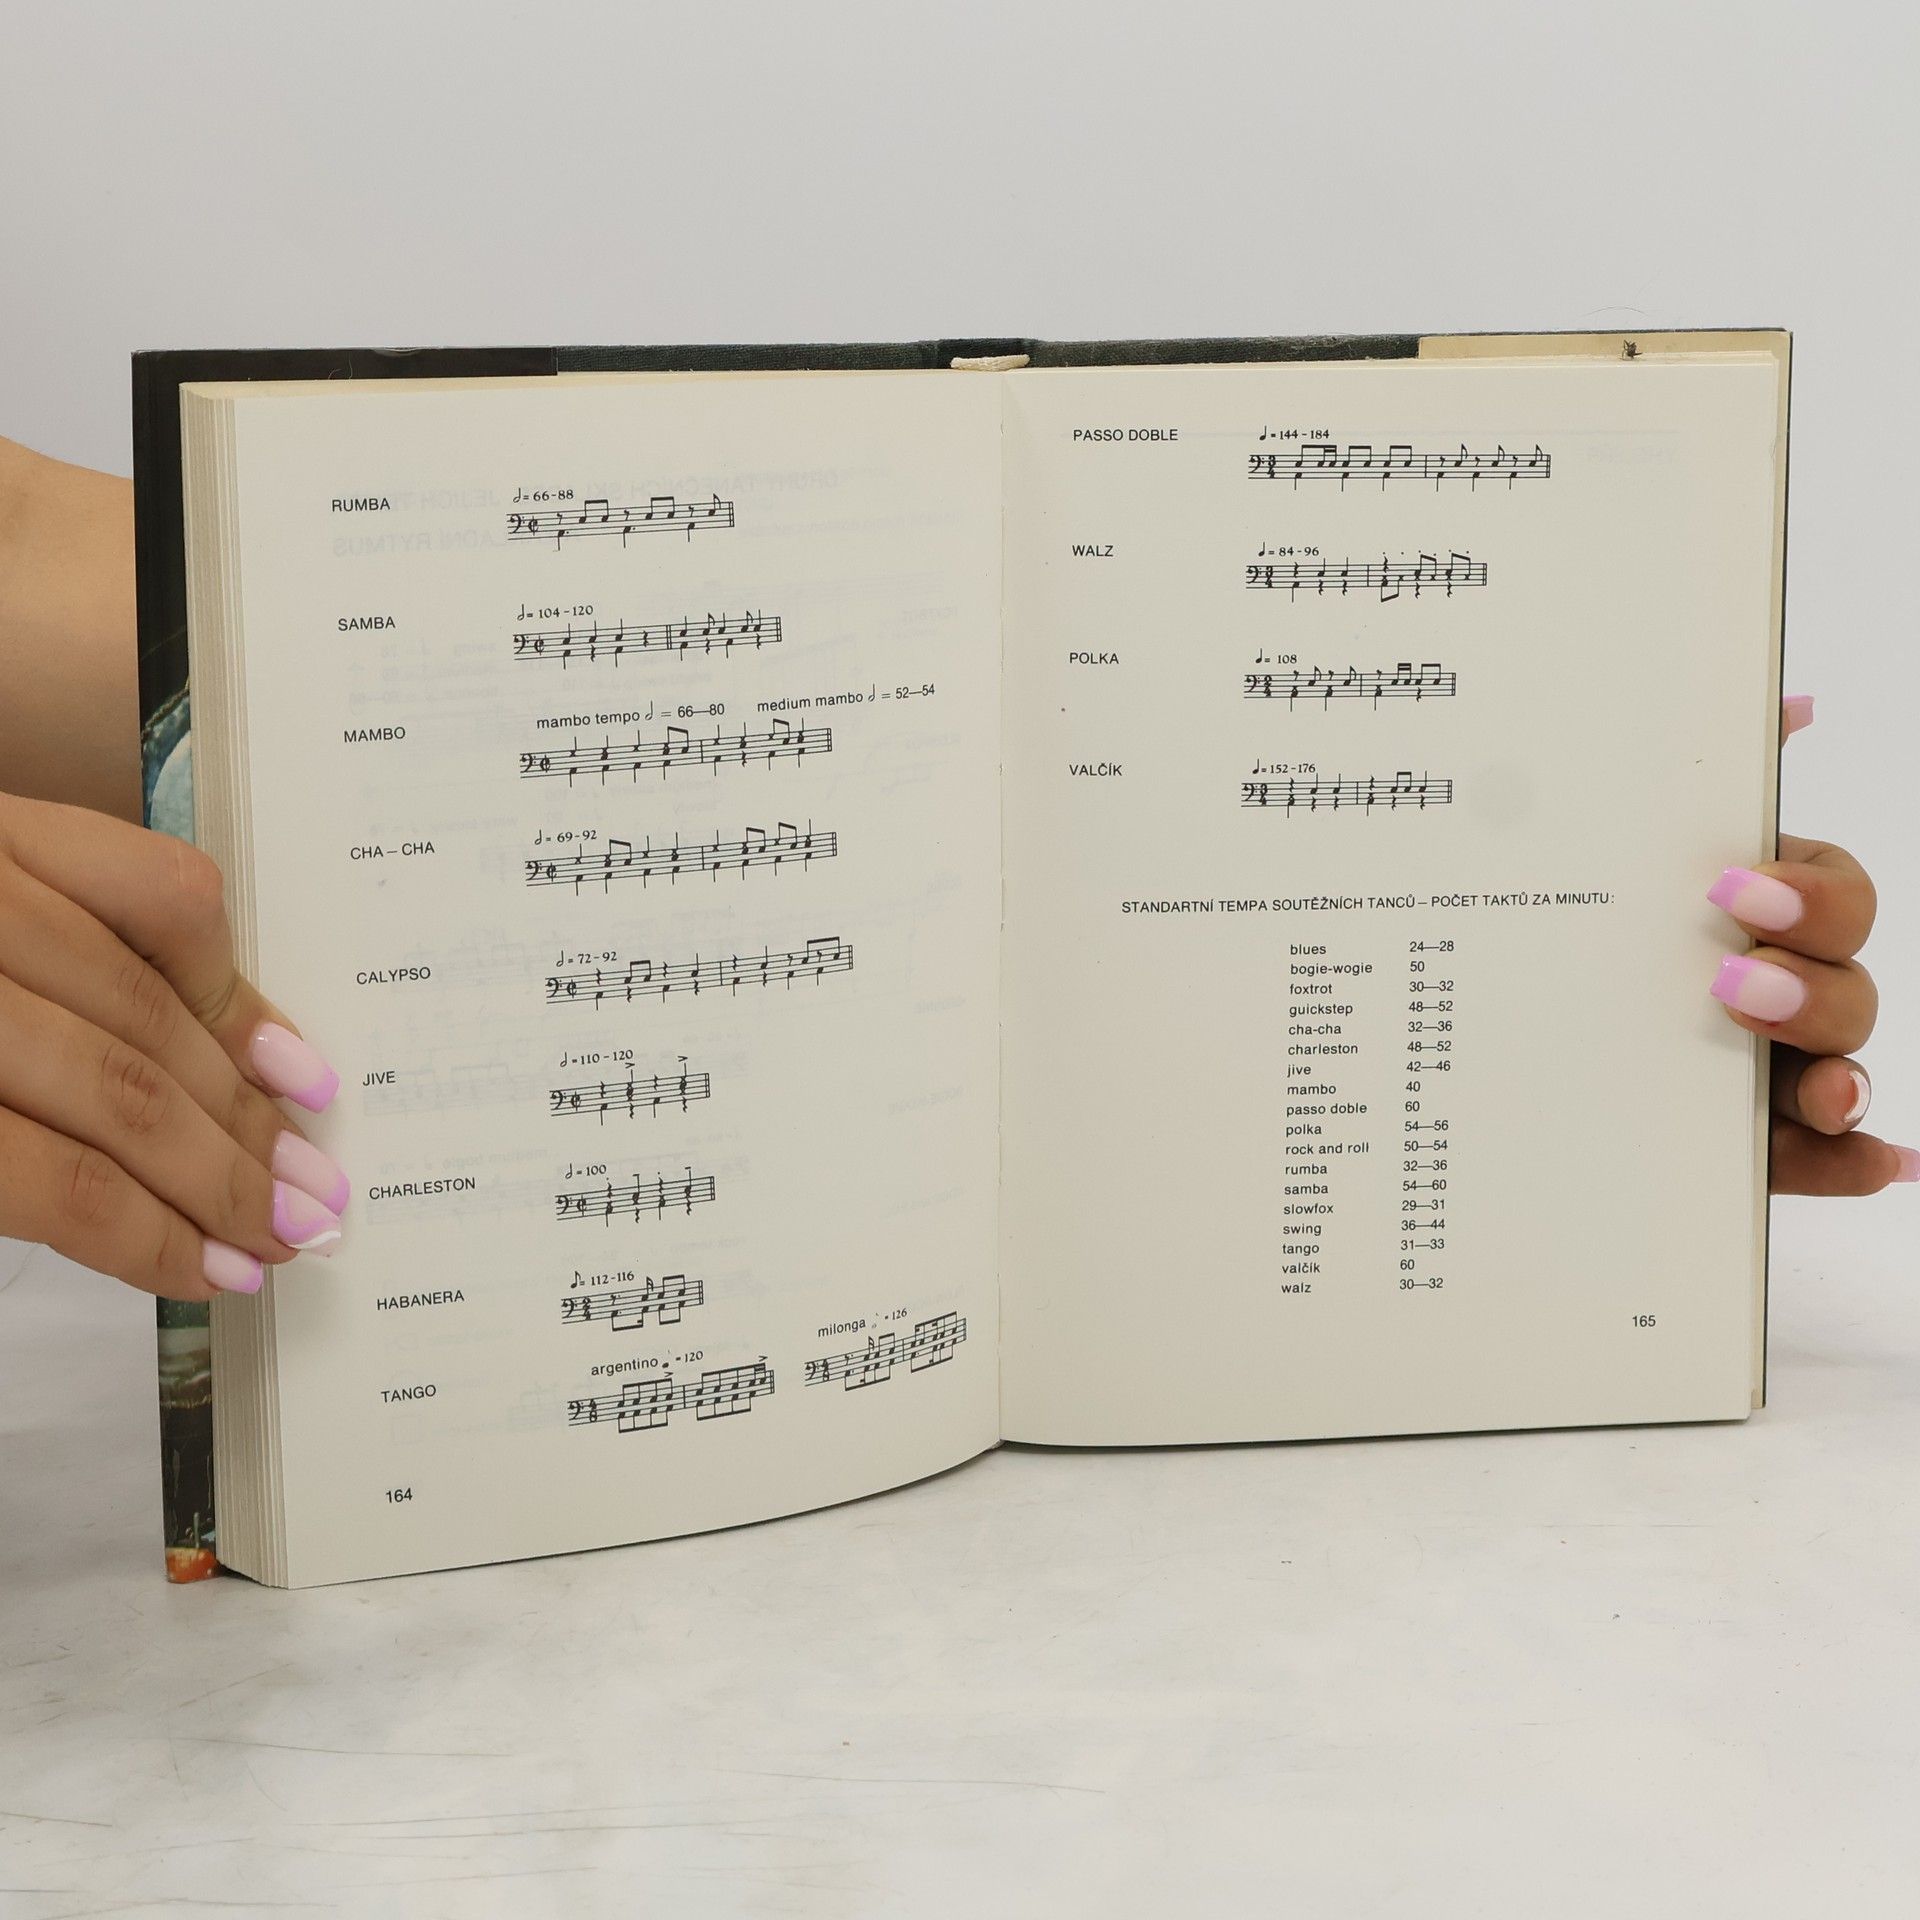 RUMBA
𝅗𝅥= 66-88
SAMBA
𝅗𝅥= 104-120
MAMBO
mambo tempo 𝅗𝅥 = 66—80 medium mambo 𝅗𝅥 = 52—54
CHA – CHA
𝅗𝅥= 69-92
CALYPSO
𝅗𝅥= 72-92
JIVE
𝅗𝅥=110-120
CHARLESTON
𝅗𝅥=100
HABANERA
♪= 112-116
TANGO
argentino =120
milonga =126
164
PASSO DOBLE
♩=144-184
WALZ
♩=84-96
POLKA
♩= 108
VALČÍK
♩=152-176
STANDARTNÍ TEMPA SOUTĚŽNÍCH TANCŮ – POČET TAKTŮ ZA MINUTU:
blues 24—28
bogie-wogie 50
foxtrot 30—32
guickstep 48—52
cha-cha 32—36
charleston 48—52
jive 42—46
mambo 40
passo doble 60
polka 54—56
rock and roll 50—54
rumba 32—36
samba 54—60
slowfox 29—31
swing 36—44
tango 31—33
valčík 60
walz 30—32
165